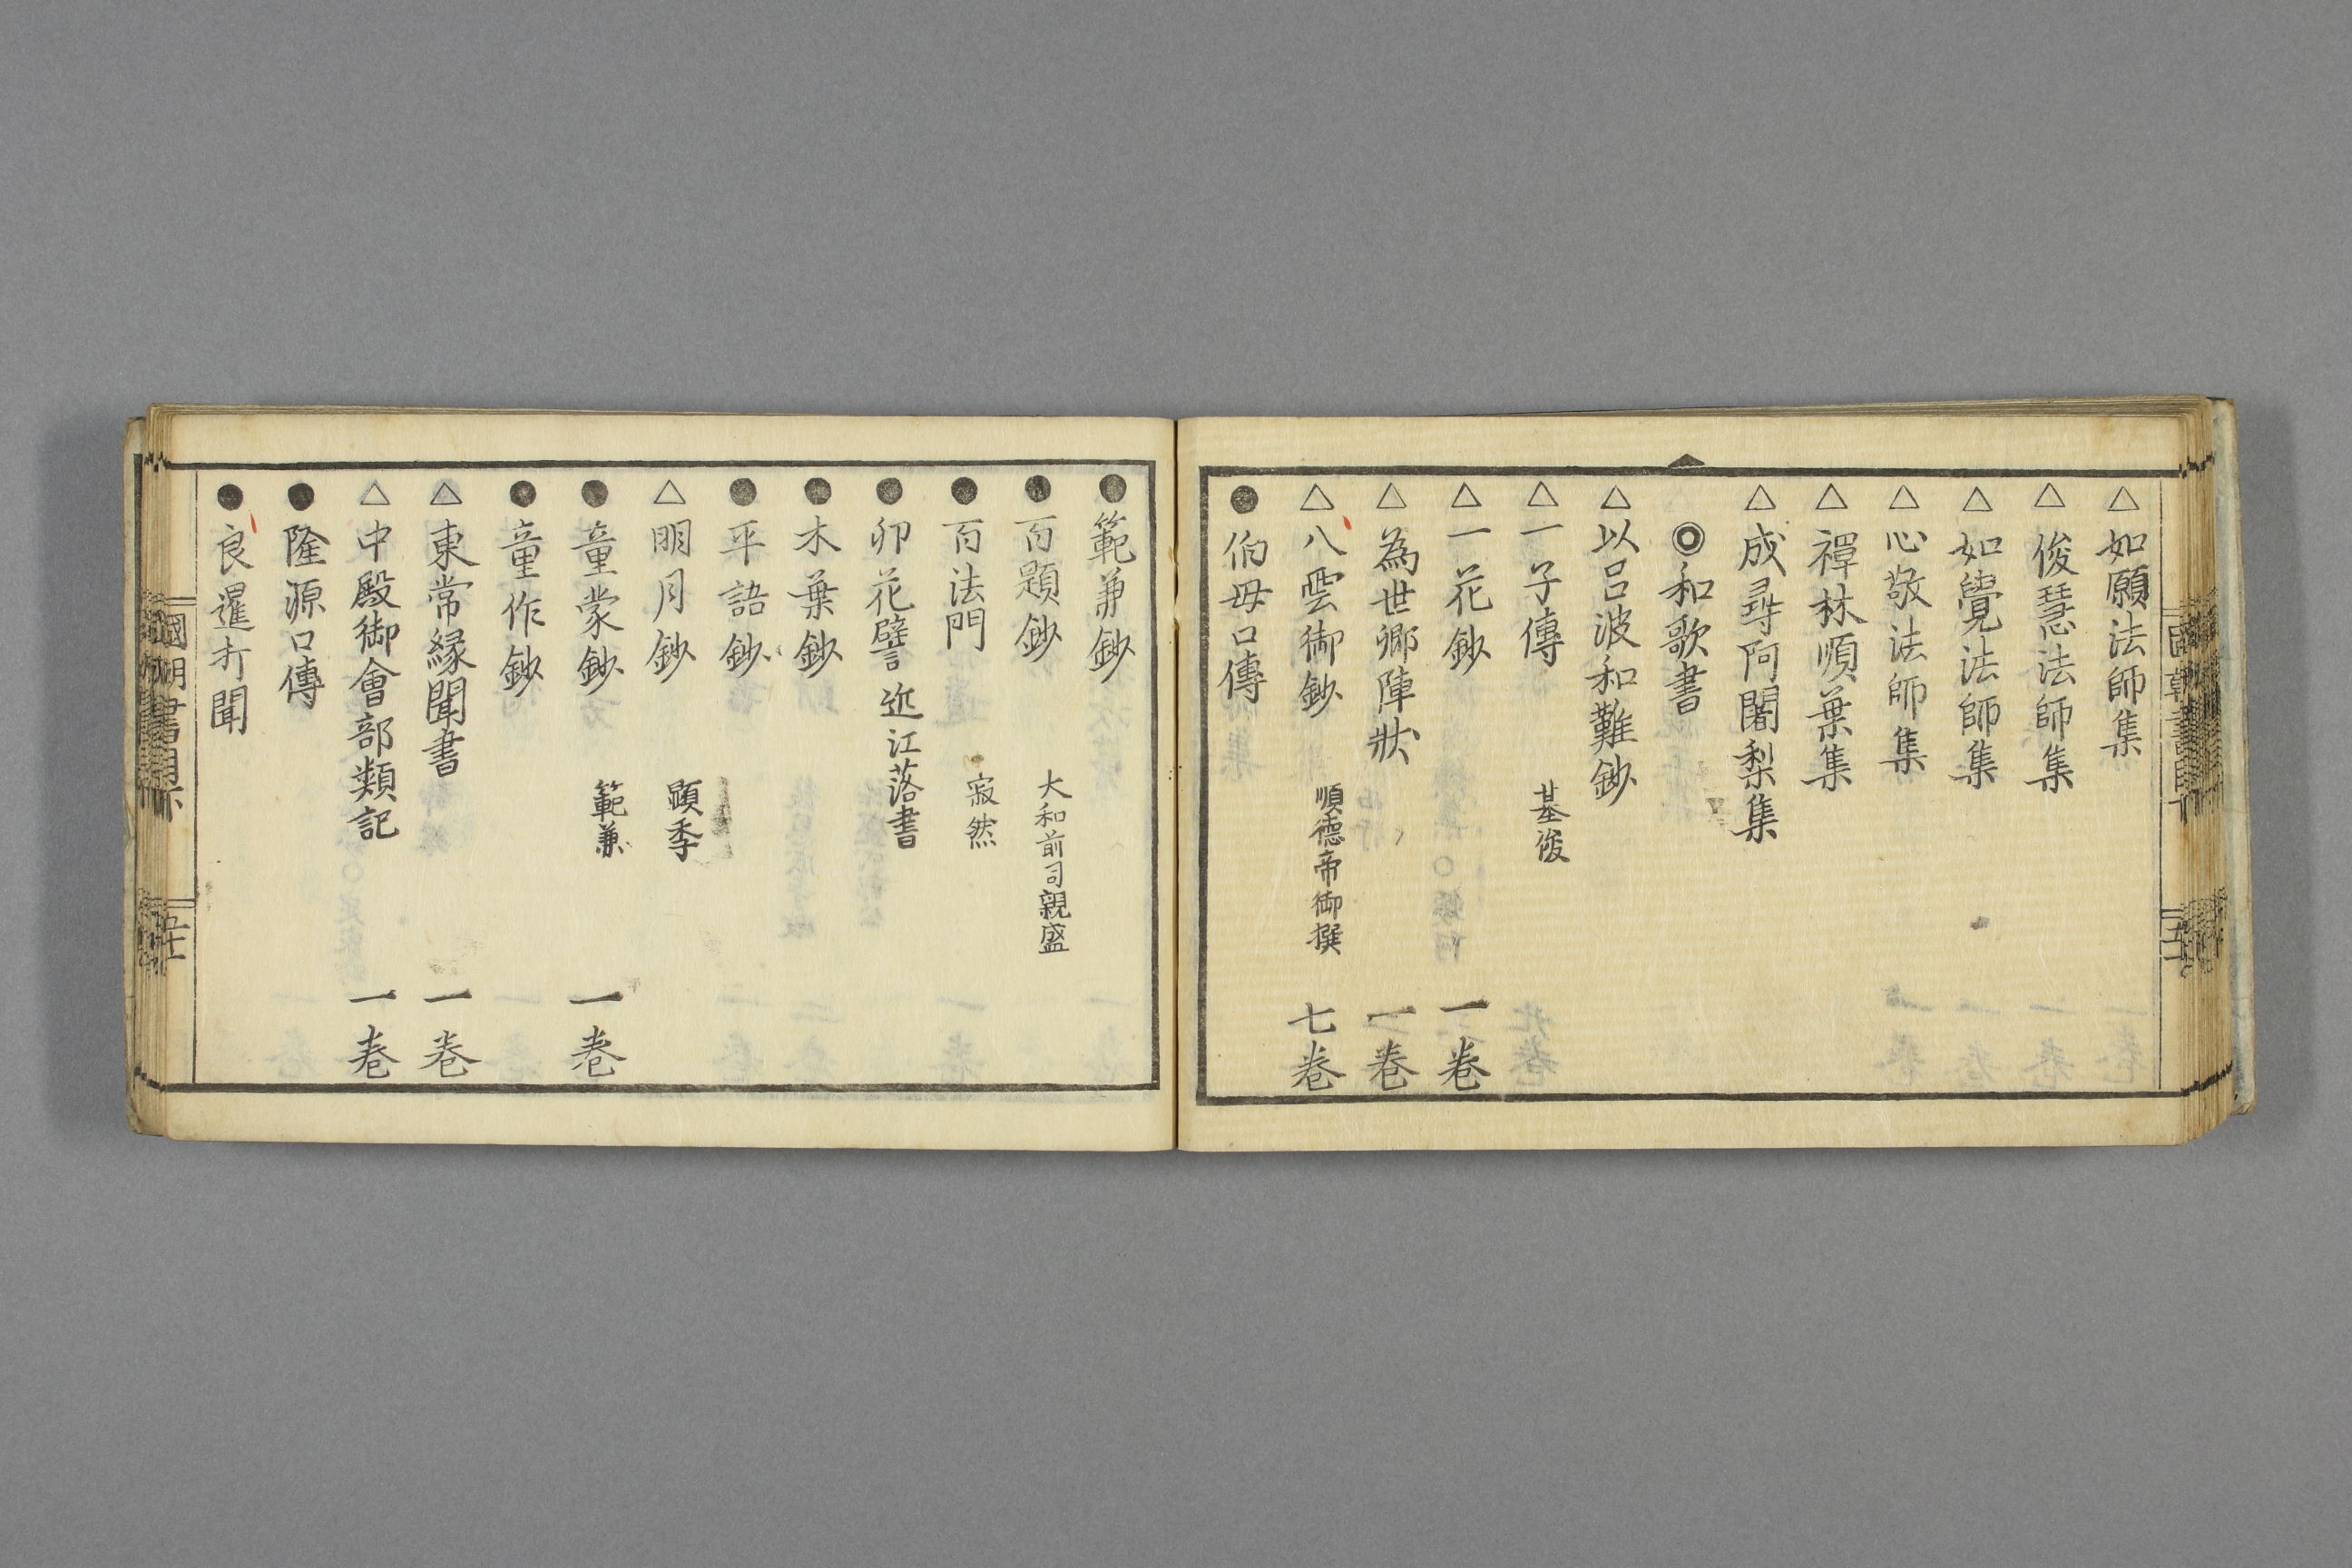 △如願法師集
△俊慧法師集
△如覺法師集
△心敬法師集
△禪林順葉集
△成尋阿闍梨集
◎和歌書
△以呂波和難鈔
△一子傳 基俊
△一花鈔 一卷
△為世卿陣狀 一卷
△八雲御鈔 順德帝御撰 七卷
●伯母口傳
●範兼鈔
●百題鈔 大和前司親盛
●百法門 寂然
●卯花譬 近江落書
●木葉鈔
●平語鈔
△明月鈔 顕季
●童蒙鈔 範兼 一卷
●童作鈔
△東常緣聞書 一卷
△中殿御會部類記 一卷
●隆源口傳
●良暹打聞
國朝書目